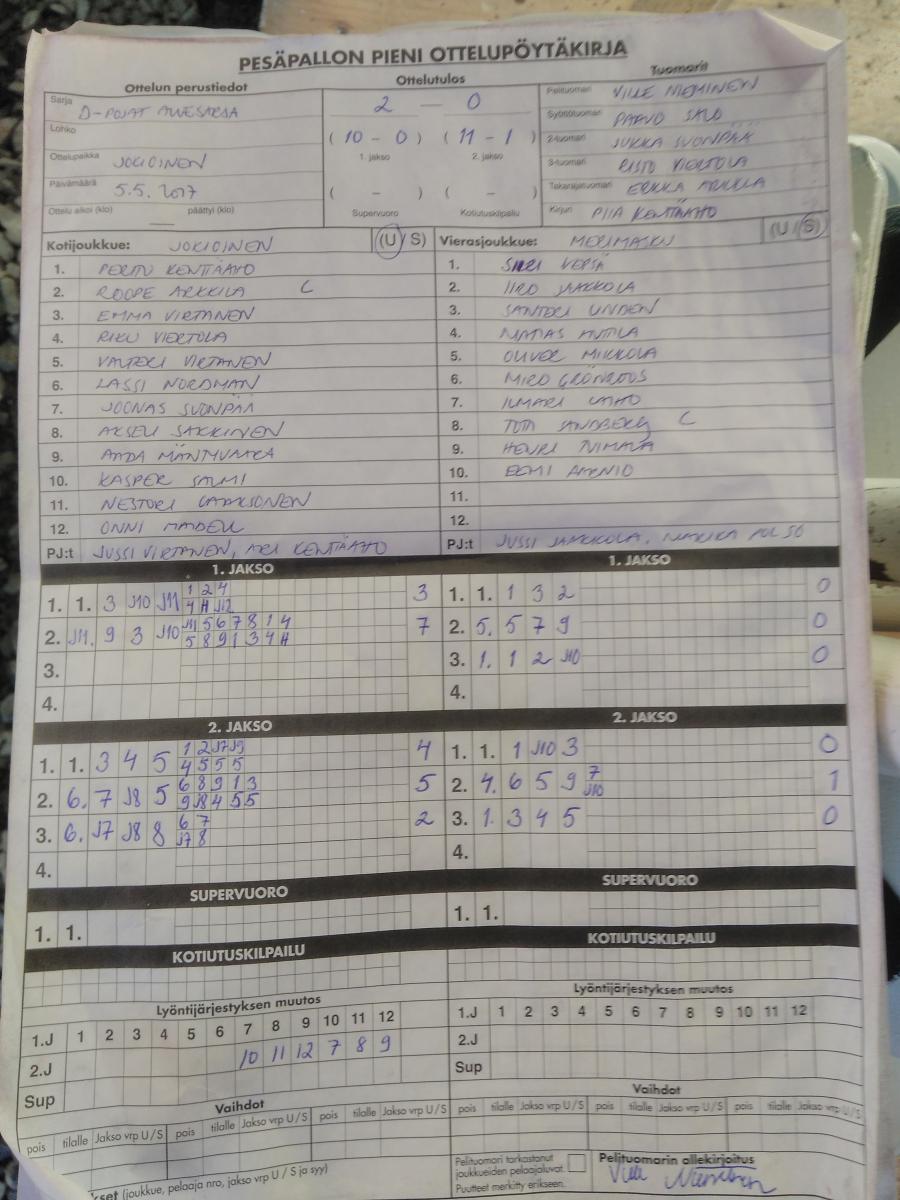 PESÄPALLON PIENI OTTELUPÖYTÄKIRJA
Ottelun perustiedot
Ottelutulos
Tuomarit
Sarja D-POJAT ALUESARJA
Lohko
Ottelupaikka JOKIOINEN
Päivämäärä 5.5.2017
Ottelu alkoi (klo) päättyi (klo)
2 – 0
(10 – 0) (11 – 1)
1. jakso 2. jakso
( – ) ( – )
Supervuoro Kotiutuskilpailu
Pelituomari VILLE NIEMINEN
Syöttötuomari PAAVO SALO
2-tuomari JUKKA SUONPÄÄ
3-tuomari RISTO VIERTOLA
Takarajatuomari ERKKA ARKKILA
Kirjuri PIIA KENTTÄAHO
Kotijoukkue: JOKIOINEN (U/S)
1. PERTTU KENTTÄAHO
2. ROOPE ARKKILA C
3. EMMA VIRTANEN
4. RIKU VIERTOLA
5. VALTTERI VIRTANEN
6. LASSI NORDMAN
7. JOONAS SUONPÄÄ
8. AKSELI SAKKINEN
9. AADA MÄNTYVAARA
10. KASPER SALMI
11. NESTORI
12. ONNI
PJ:t JUSSI VIRTANEN, KENTTÄAHO
Vierasjoukkue: MERIMASKU (U/S)
1. VEPSÄ
2. IIRO JAAKKOLA
3. SANTERI LINDEN
4. MATIAS ANTTILA
5. OLIVER MIKKOLA
6. MIRO GRÖNROOS
7. ILMARI LAHO
8. SANDBERG C
9. HENRI
10. EEMI AARNIO
11.
12.
PJ:t JUSSI JAAKKOLA,
1. JAKSO
1. 1. 3 J10 J11 1 2 4 3
4 H J12
2. J11. 9 3 J10 J11 5 6 7 8 1 4 7
5 8 9 1 3 4 H
3.
4.
1. JAKSO
1. 1. 1 3 2 0
2. 5. 5 7 9 0
3. 1. 1 2 J10 0
4.
2. JAKSO
1. 1. 3 4 5 1 2 J7 J9 4
4 5 5 5
2. 6. 7 J8 5 6 8 9 1 3 5
9 J8 4 5 5
3. 6. J7 J8 8 6 7 2
J7 8
4.
2. JAKSO
1. 1. 1 J10 3 0
2. 4. 6 5 9 7 1
J10
3. 1. 3 4 5 0
4.
SUPERVUORO
1. 1.
SUPERVUORO
1. 1.
KOTIUTUSKILPAILU
KOTIUTUSKILPAILU
Lyöntijärjestyksen muutos
1.J 1 2 3 4 5 6 7 8 9 10 11 12
2.J 10 11 12 7 8 9
Sup
Lyöntijärjestyksen muutos
1.J 1 2 3 4 5 6 7 8 9 10 11 12
2.J
Sup
Vaihdot
pois tilalle Jakso vrp U/S pois tilalle Jakso vrp U/S pois tilalle Jakso vrp U/S
Vaihdot
pois tilalle Jakso vrp U/S pois tilalle Jakso vrp U/S pois tilalle Jakso vrp U/S
(joukkue, pelaaja nro, jakso vrp U / S ja syy)
Pelituomari tarkastanut
joukkueiden pelaajaluvat.
Puutteet merkitty erikseen.
Pelituomarin allekirjoitus
Ville Nieminen